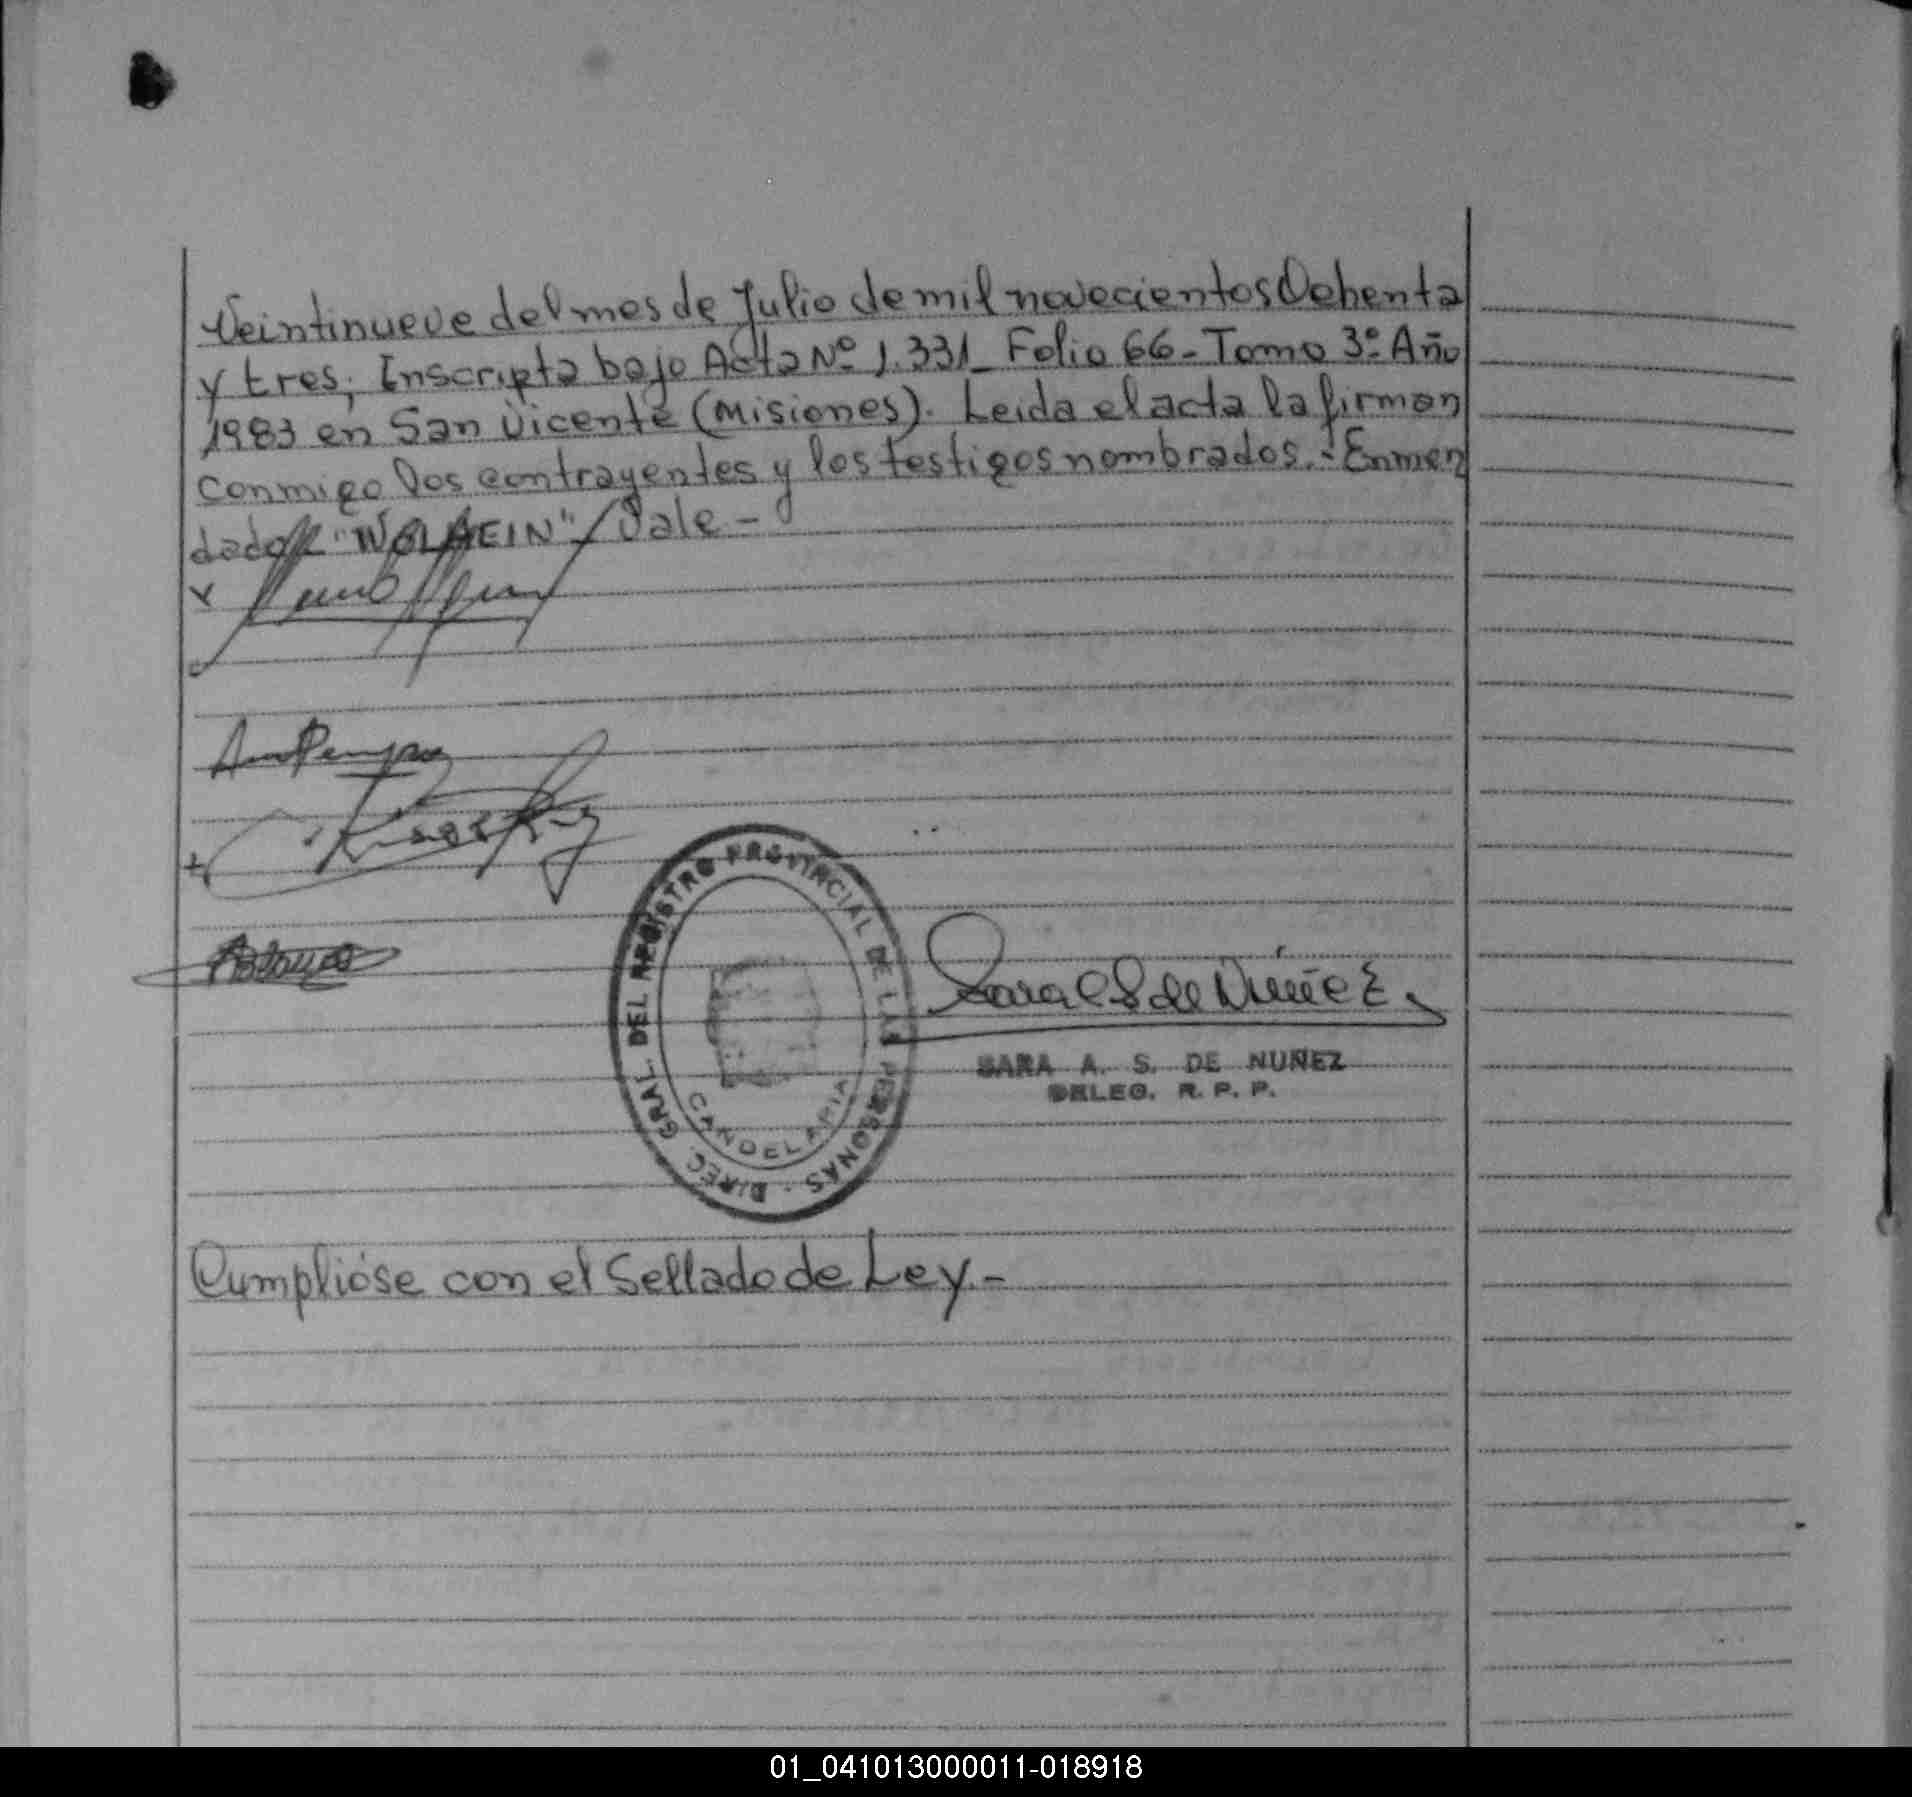 Veintinueve del mes de Julio de mil novecientos Ochenta
y tres, Inscripta bajo Acta Nº 1.331_ Folio 66- Tomo 3º- Año
1983 en San Vicente (Misiones). Leida el acta la firman
conmigo los contrayentes y los testigos nombrados.- Enmen
dado: "WOLHEIN" Vale -
x
+
DIREC. GRAL. DEL REGISTRO PROVINCIAL DE LAS PERSONAS -
CANDELARIA
Sara S de Núñez
SARA A. S. DE NUÑEZ
DELEG. R. P. P.
Cumplióse con el Sellado de Ley.-
01_041013000011-018918